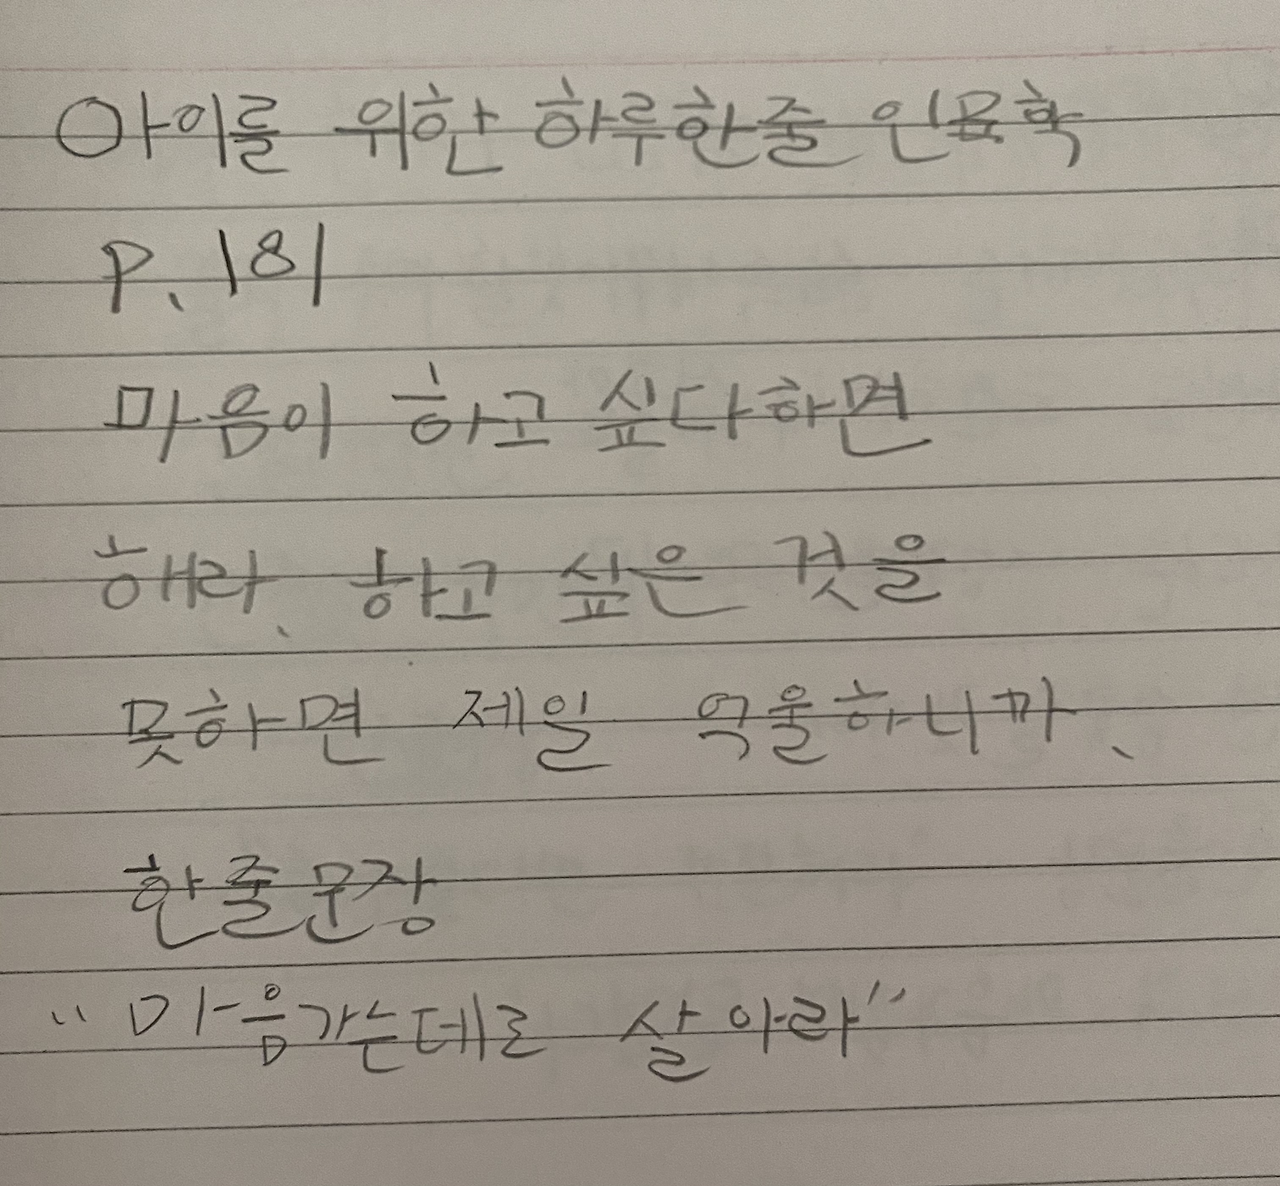 아이를 위한 하루한줄 인문학
P. 181
마음이 하고 싶다하면
해라. 하고 싶은 것을
못하면 제일 억울하니까.
한줄문장
"마음가는데로 살아라"